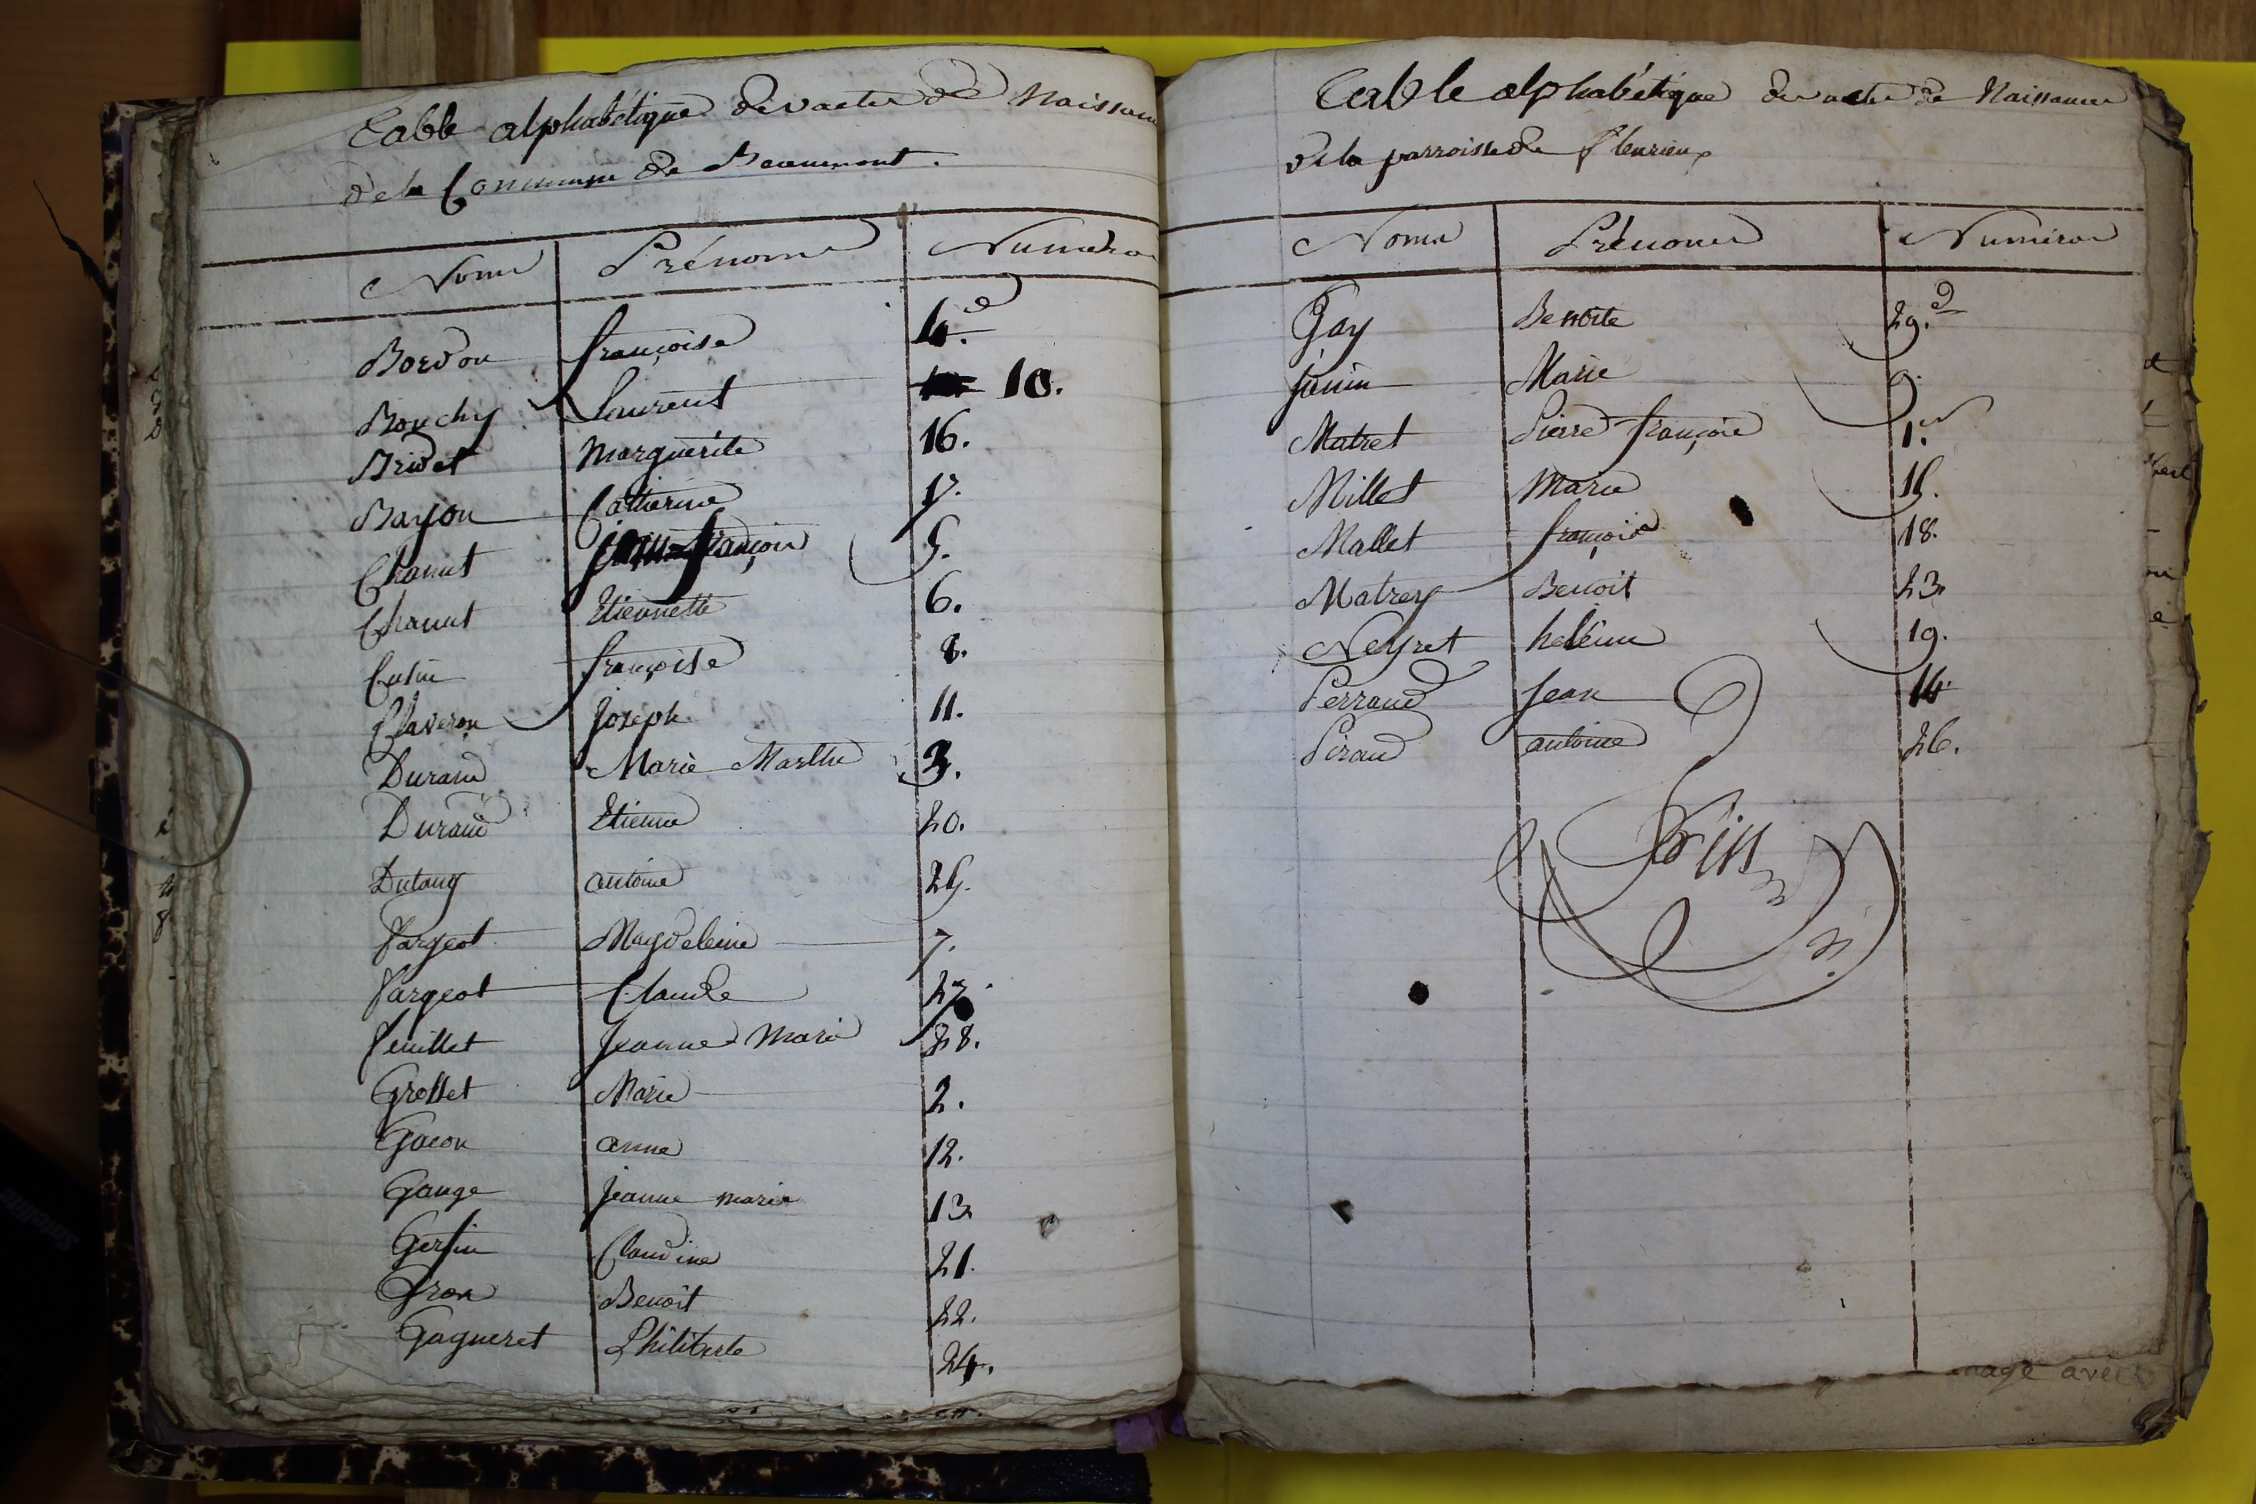 Table alphabétique des actes de Naissance
de la Commune de Beaumont.
Noms Prénoms Numéros
Bordon françoise 4.e
Bouchy Laurent 10.
Bridet Marguerite 16.
Bayon Catherine 17.
Chanut françois 5.
Chanut Etiennette 6.
Cusin françoise 8.
Claveron Joseph 11.
Durand Marie Marthe 3.
Durand Etienne 20.
Dutang antoine 25.
fargeot Magdeleine 7.
fargeot Claude 27.
feuillet Jeanne Marie 28.
Grosset Marie 2.
Gacon anne 12.
Gange jeanne marie 13
Gersin Claudine 21.
Gron Benoît 22.
Gagneret Philiberte 24.
Table alphabétique des actes de Naissances
de la parroisse de fleurieux
Noms Prénoms Numéros
Gay Benoite 29.e
Janin Marie 9.
Matret Pierre françois 1.er
Millet Marie 15.
Mallet françois 18.
Matrey Benoit 23.
Neyret heléine 19.
Perraud Jean 14.
Piraud antoine 26.
fin
nage avec